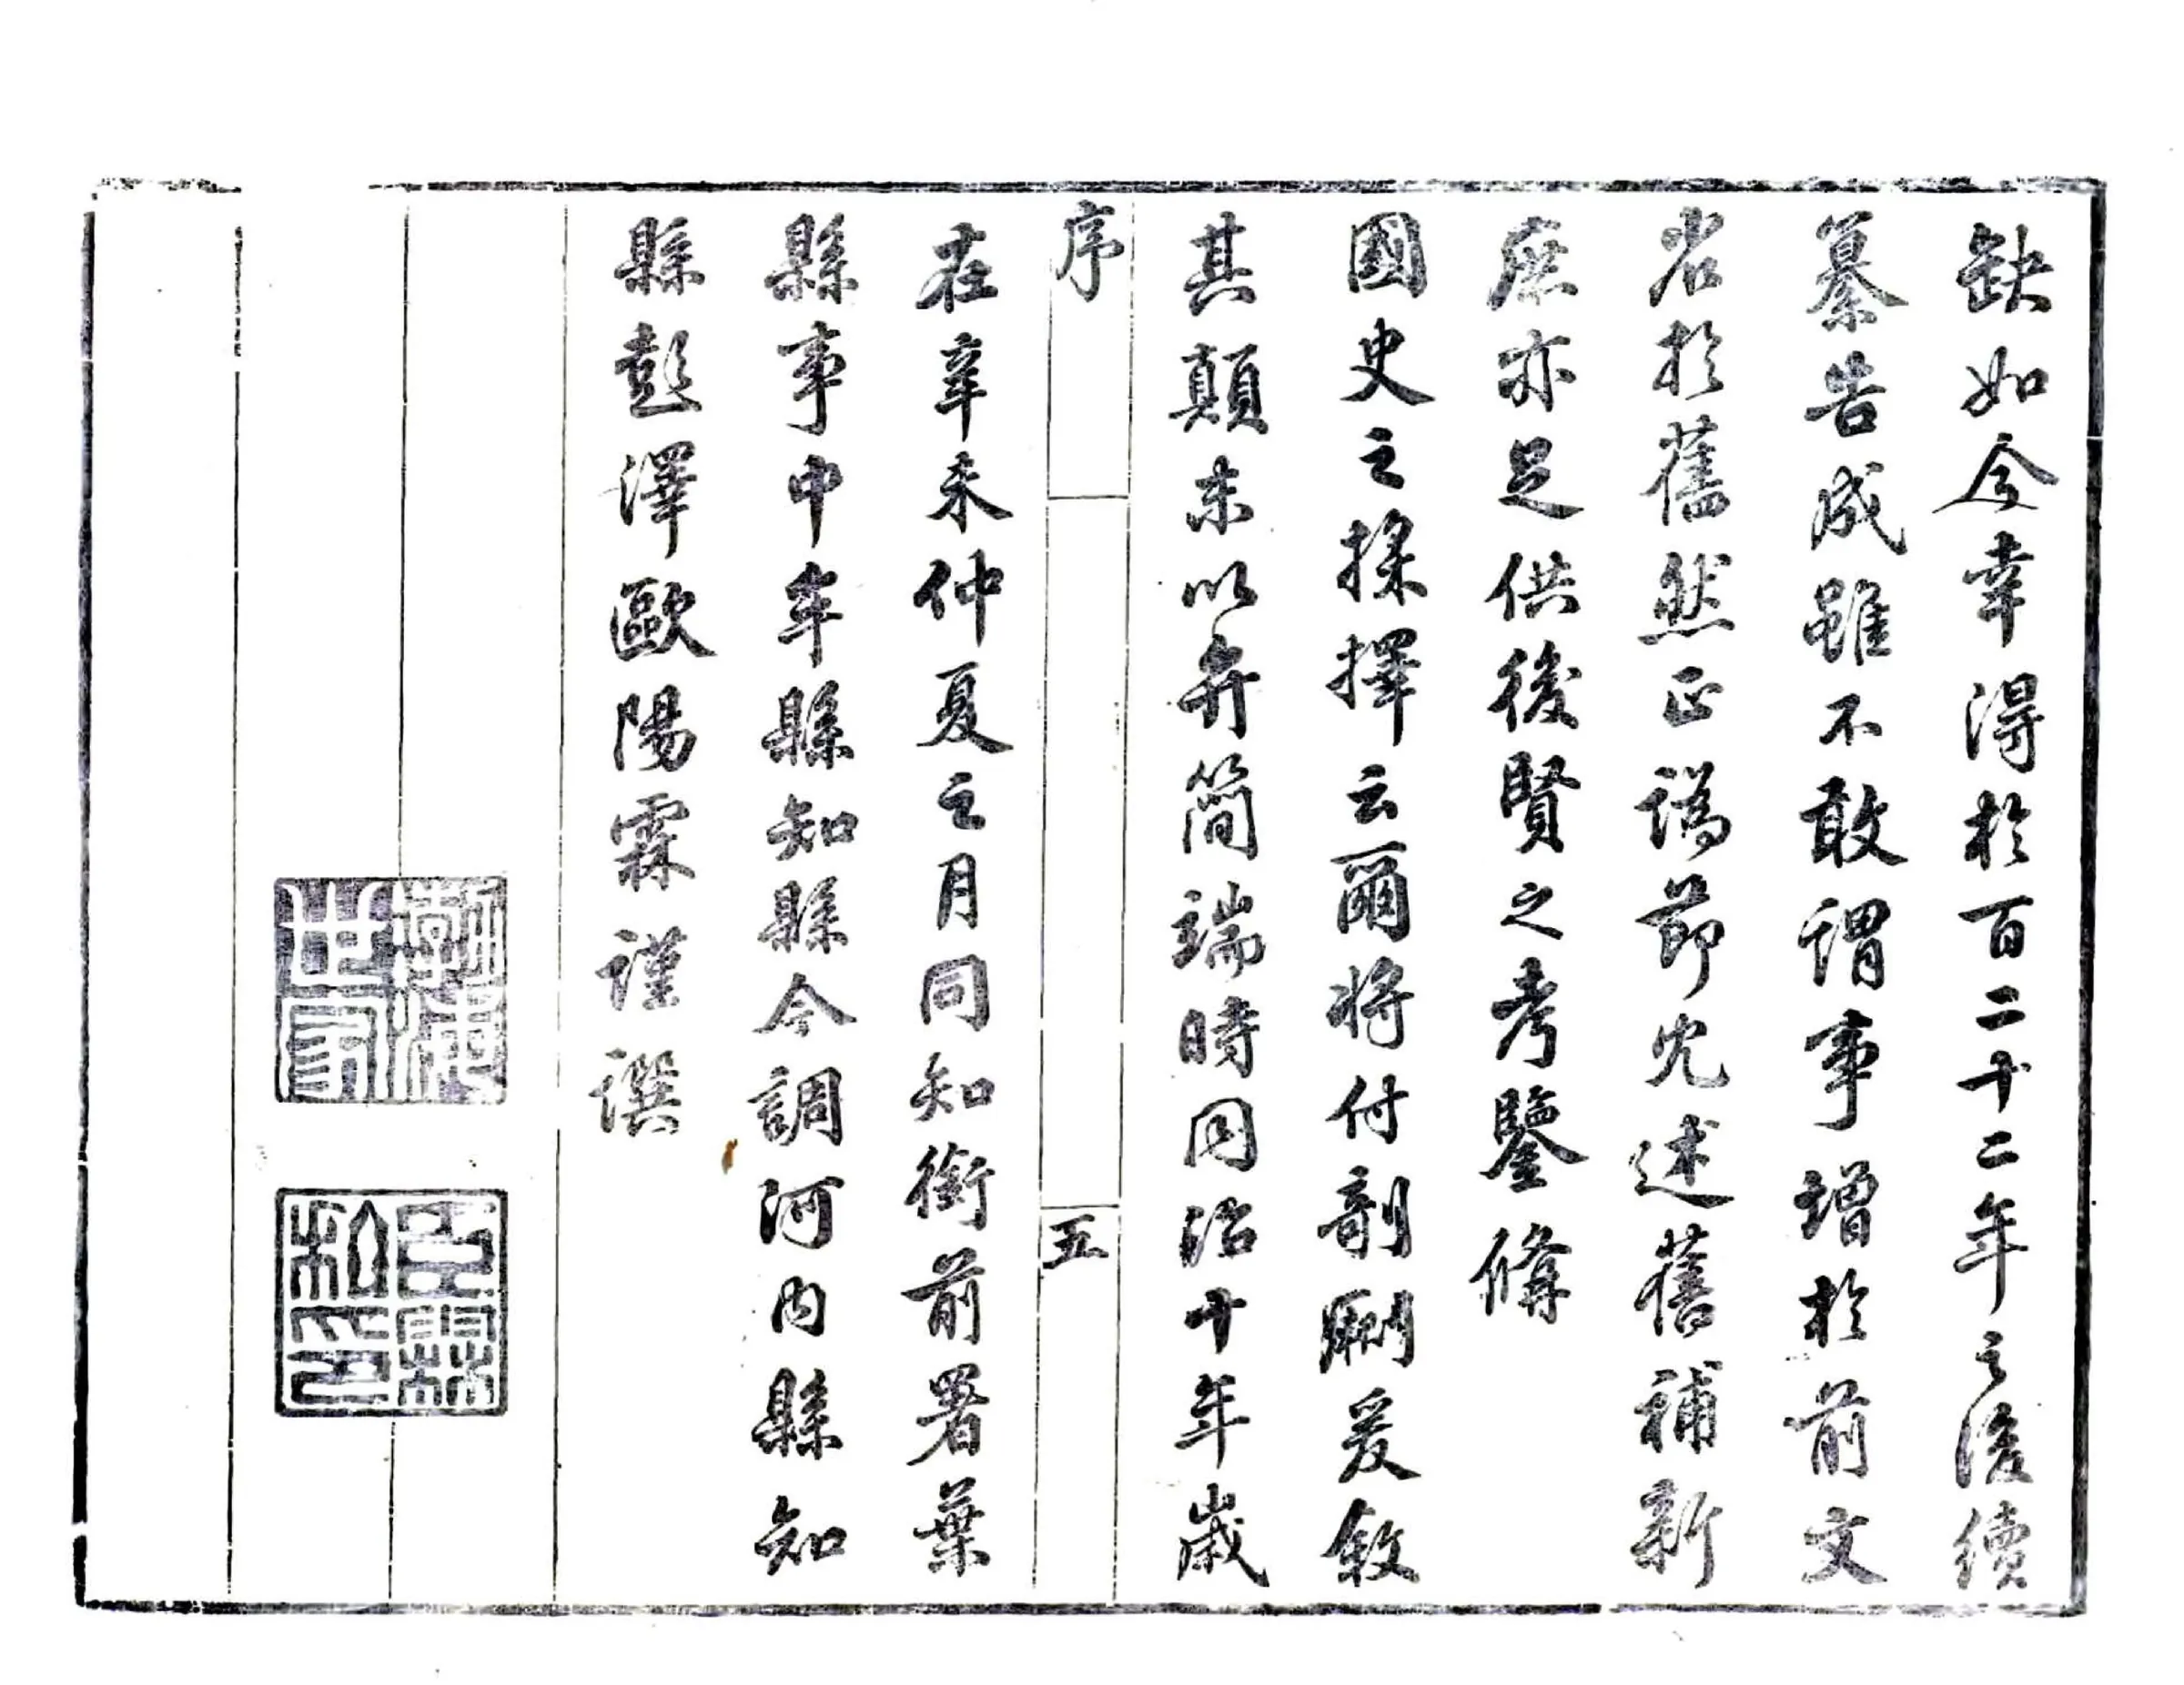 缺如今幸得於百二十二年之後續
纂告成雖不敢謂事增於前文
省於舊然正譌節冗述舊補新
庶亦足供後賢之考鑒備
國史之採擇云爾將付剞劂爰敘
其顛末以弁簡端時同治十年歲
序
五
在辛未仲夏之月同知銜前署葉
縣事中牟縣知縣今調河內縣知
縣彭澤歐陽霖謹譔
渤海
世家
臣霖
私印